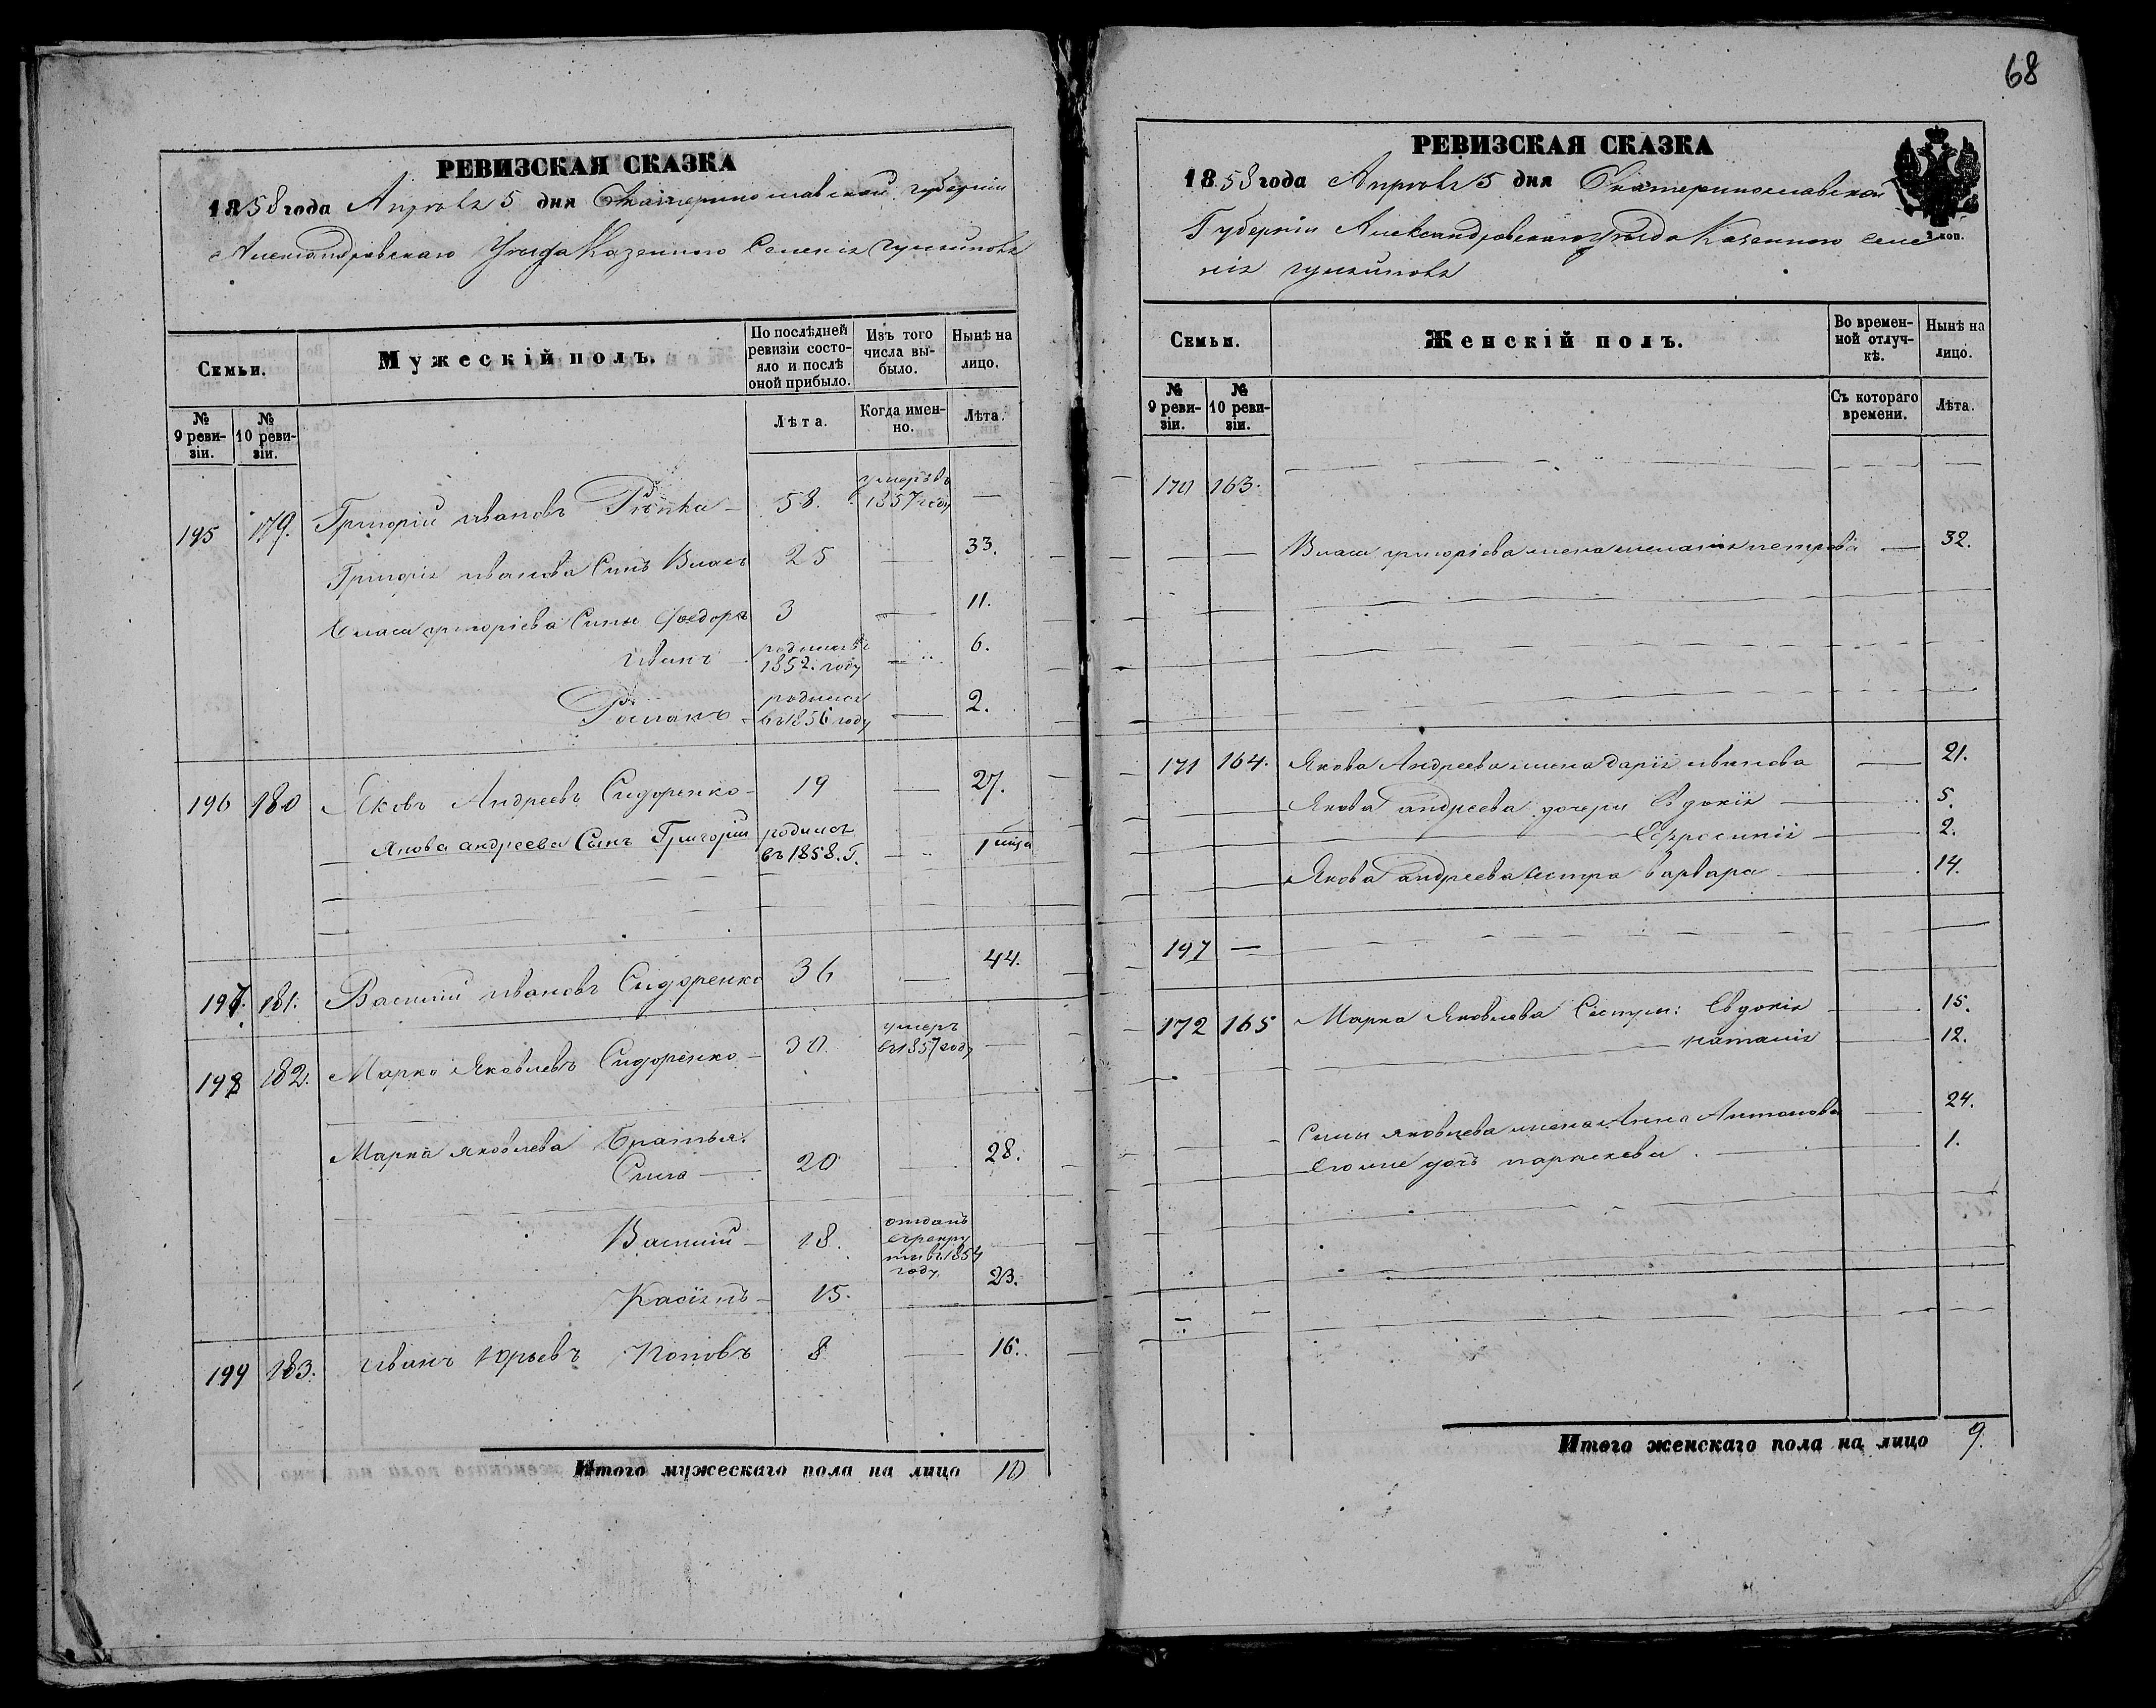 68
РЕВИЗСКАЯ СКАЗКА
1858 года Апреля 5 дня Екатеринославской губернiи
Александровскаго Уезда Казенного Селенiя
Семьи.
Мужескiй полъ.
По послѣдней ревизiи состояло и послѣ оной прибыло.
Изъ того числа выбыло.
Нынѣ на лицо.
№ 9 ревизiи.
№ 10 ревизiи.
Лѣта.
Когда именно.
Лѣта.
195 179. Григорiй Ивановъ Рѣпка 58. умеръ въ 1857 году —
Григорiя Иванова Сынъ Власъ 25 — 33.
Власа григорiева Сыны Федоръ 3 — 11.
Иванъ родился въ 1852. году — 6.
Романъ родился въ 1856 году — 2.
196 180 Яковъ Андреевъ Сидоренко 19 — 27.
Якова андреева Сынъ Григорiй родился въ 1858. г. — 1 мѣца
197. 181. Василiй Ивановъ Сидоренко 36 — 44.
198 182. Марко Яковлевъ Сидоренко 30. умеръ въ 1857 году —
Марка яковлева Братья:
20 — 28.
Василiй 18. отданъ въ рекруты въ 1854 году —
Касiянъ 15. — 23.
199 183. Иванъ Юрьевъ Поповъ 8 — 16.
Итого мужескаго пола на лицо 10
РЕВИЗСКАЯ СКАЗКА
1858 года Апреля 5 дня Екатеринославской
Губернiи Александровскаго уезда Казенного селе
нiя
2 коп.
Семьи.
Женскiй полъ.
Во временной отлучкѣ.
Нынѣ на лицо.
№ 9 ревизiи.
№ 10 ревизiи.
Съ котораго времени.
Лѣта.
170 163.
Власа григорiева жена меланiя петрова — 32.
171 164. Якова Андреева жена дарiя иванова — 21.
Якова андреева дочери Евдокiя 5.
Ефросинiя 2.
Якова андреева сестра варвара 14.
197 —
172 165 Марка Яковлева Сестры: Евдокiя 15.
наталiя 12.
яковлева жена Анна Антонова — 24.
его же дочь параскева. 1.
Итого женскаго пола на лицо 9.